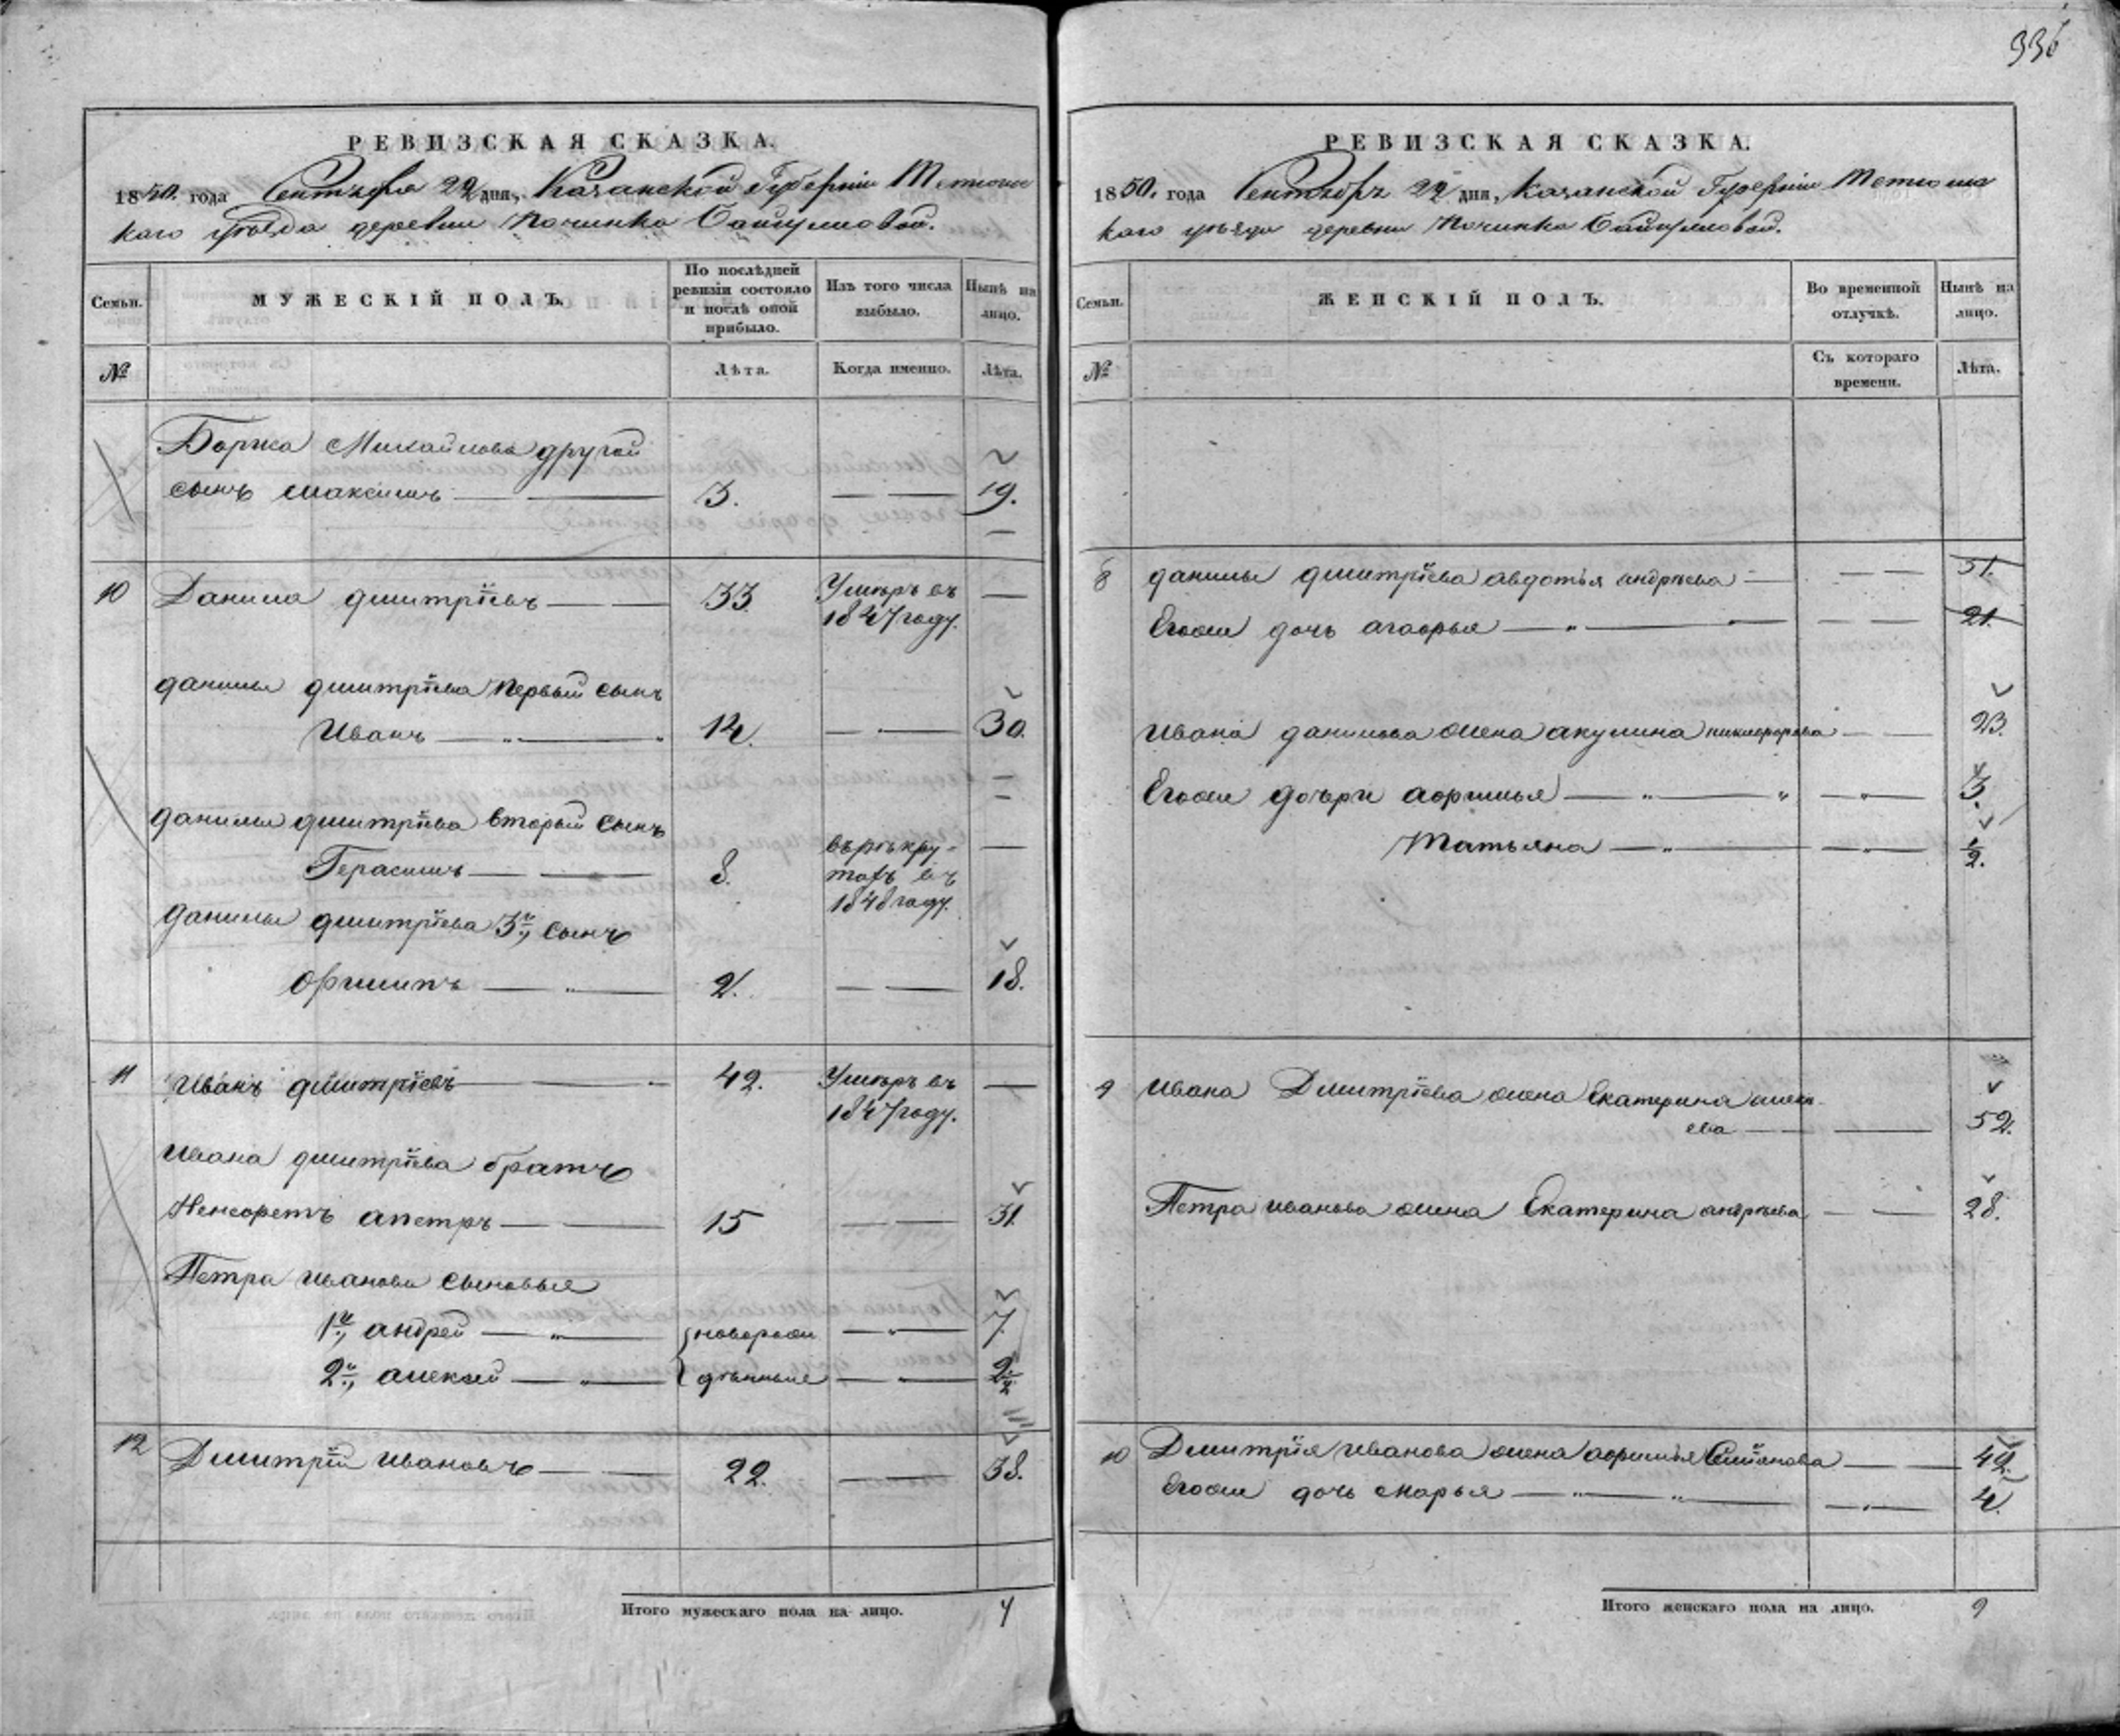 336
РЕВИЗСКАЯ СКАЗКА.
1850. года Сентября 22 дня, Казанской Губернiи Тетюшс
каго уѣзда деревни Починка Байгуловой.
Семьи.
МУЖЕСКIЙ ПОЛЪ.
По послѣдней ревизiи состояло и послѣ оной прибыло.
Изъ того числа выбыло.
Нынѣ на лицо.
№
Лѣта.
Когда именно.
Лѣта.
Михайлова другой
сынъ Максимъ — 3. — 19.
10 Данила Дмитрiевъ — 33. Умеръ въ —
1847 году.
Данилы Дмитрiева первый сынъ
Иванъ — 14. — 30.
Данилы Дмитрiева вторый сынъ
Герасимъ — 8. въ рѣкру-
товъ въ
1848 году. —
Данилы Дмитрiева 3й сынъ
— 2. — 18.
11 Иванъ Дмитрiевъ — 42. Умеръ въ —
1847 году.
Ивана Дмитрiева братъ
апетръ — 15 — 31.
Петра Иванова сыновья
1й, Андрей — новорож — 7.
2й, Алексѣй — дѣнные — 2 1/2
12 Дмитрiй Ивановъ — 22. — 38.
Итого мужескаго пола на лицо. 7
РЕВИЗСКАЯ СКАЗКА.
1850. года Сентября 22 дня, Казанской Губернiи Тетюшс
каго уѣзда деревни Починка Байгуловой.
Семьи.
ЖЕНСКIЙ ПОЛЪ.
Во временной отлучкѣ.
Нынѣ на лицо.
№
Съ котораго времени.
Лѣта.
8 Данилы Дмитрiева Авдотья Андрѣева — 51.
Егоже дочь — 21.
Ивана Данилова жена Акулина Никифорова — 23.
Егоже дочѣри — 3.
Татьяна — 1/2.
9 Ивана Дмитрiева жена Екатерина Алекс
ева — 52.
Петра Иванова жена Екатерина Андрѣева — 28.
10 Дмитрiя Иванова жена — 42.
Егоже дочь Марья — 4.
Итого женскаго пола на лицо. 9